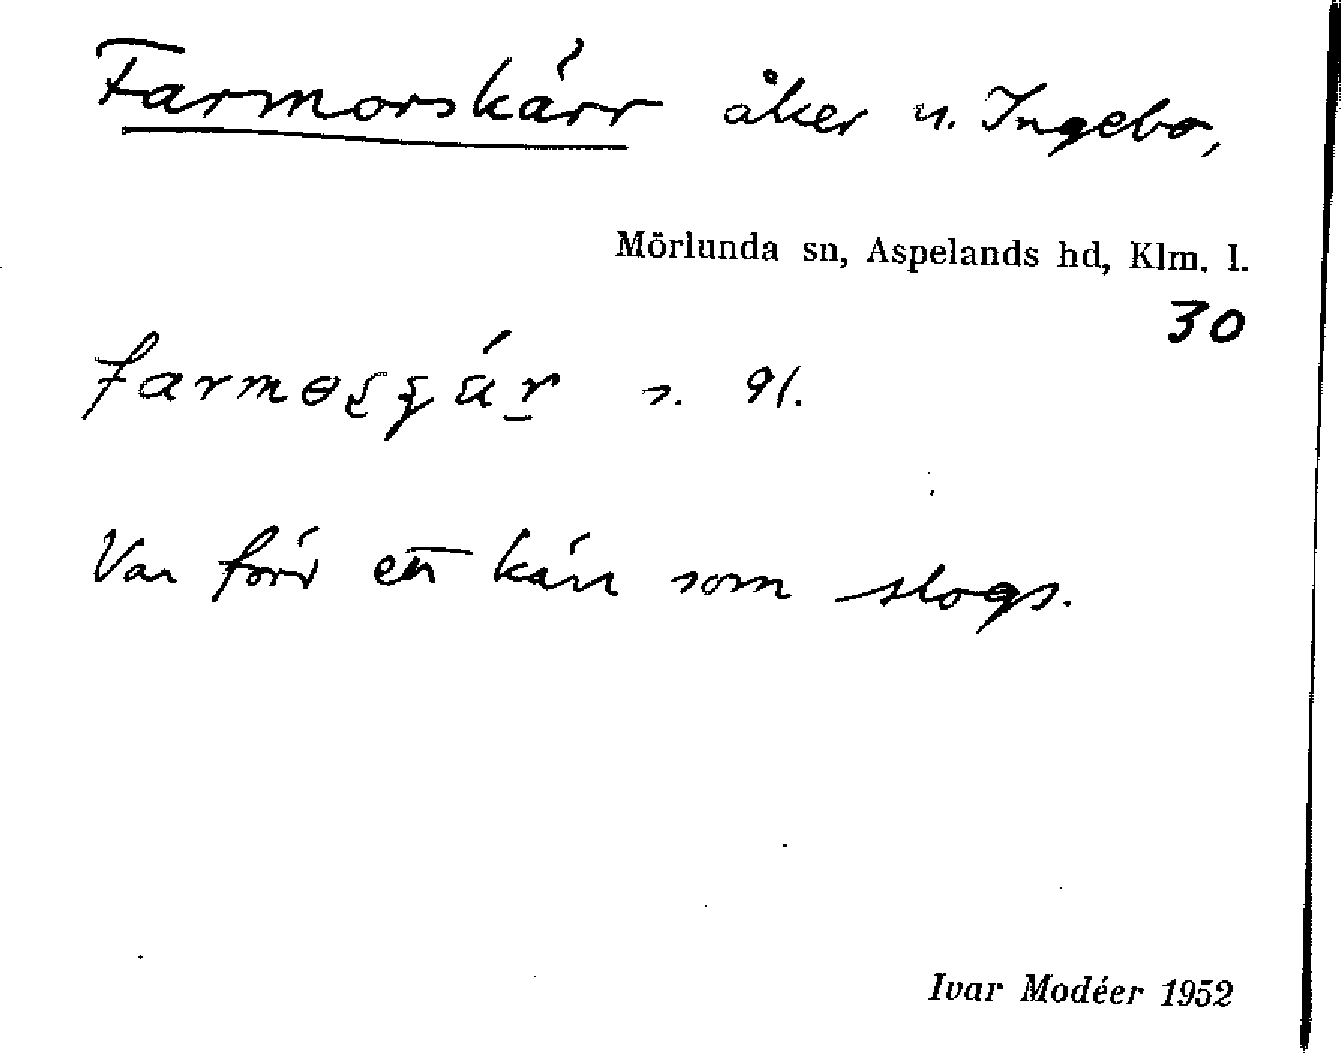 Farmorskärr åker u. Ingebo,
Mörlunda sn, Aspelands hd, Klm. l.
30
s. 91.
Var förr ett kärr som slogs.
Ivar Modéer 1952